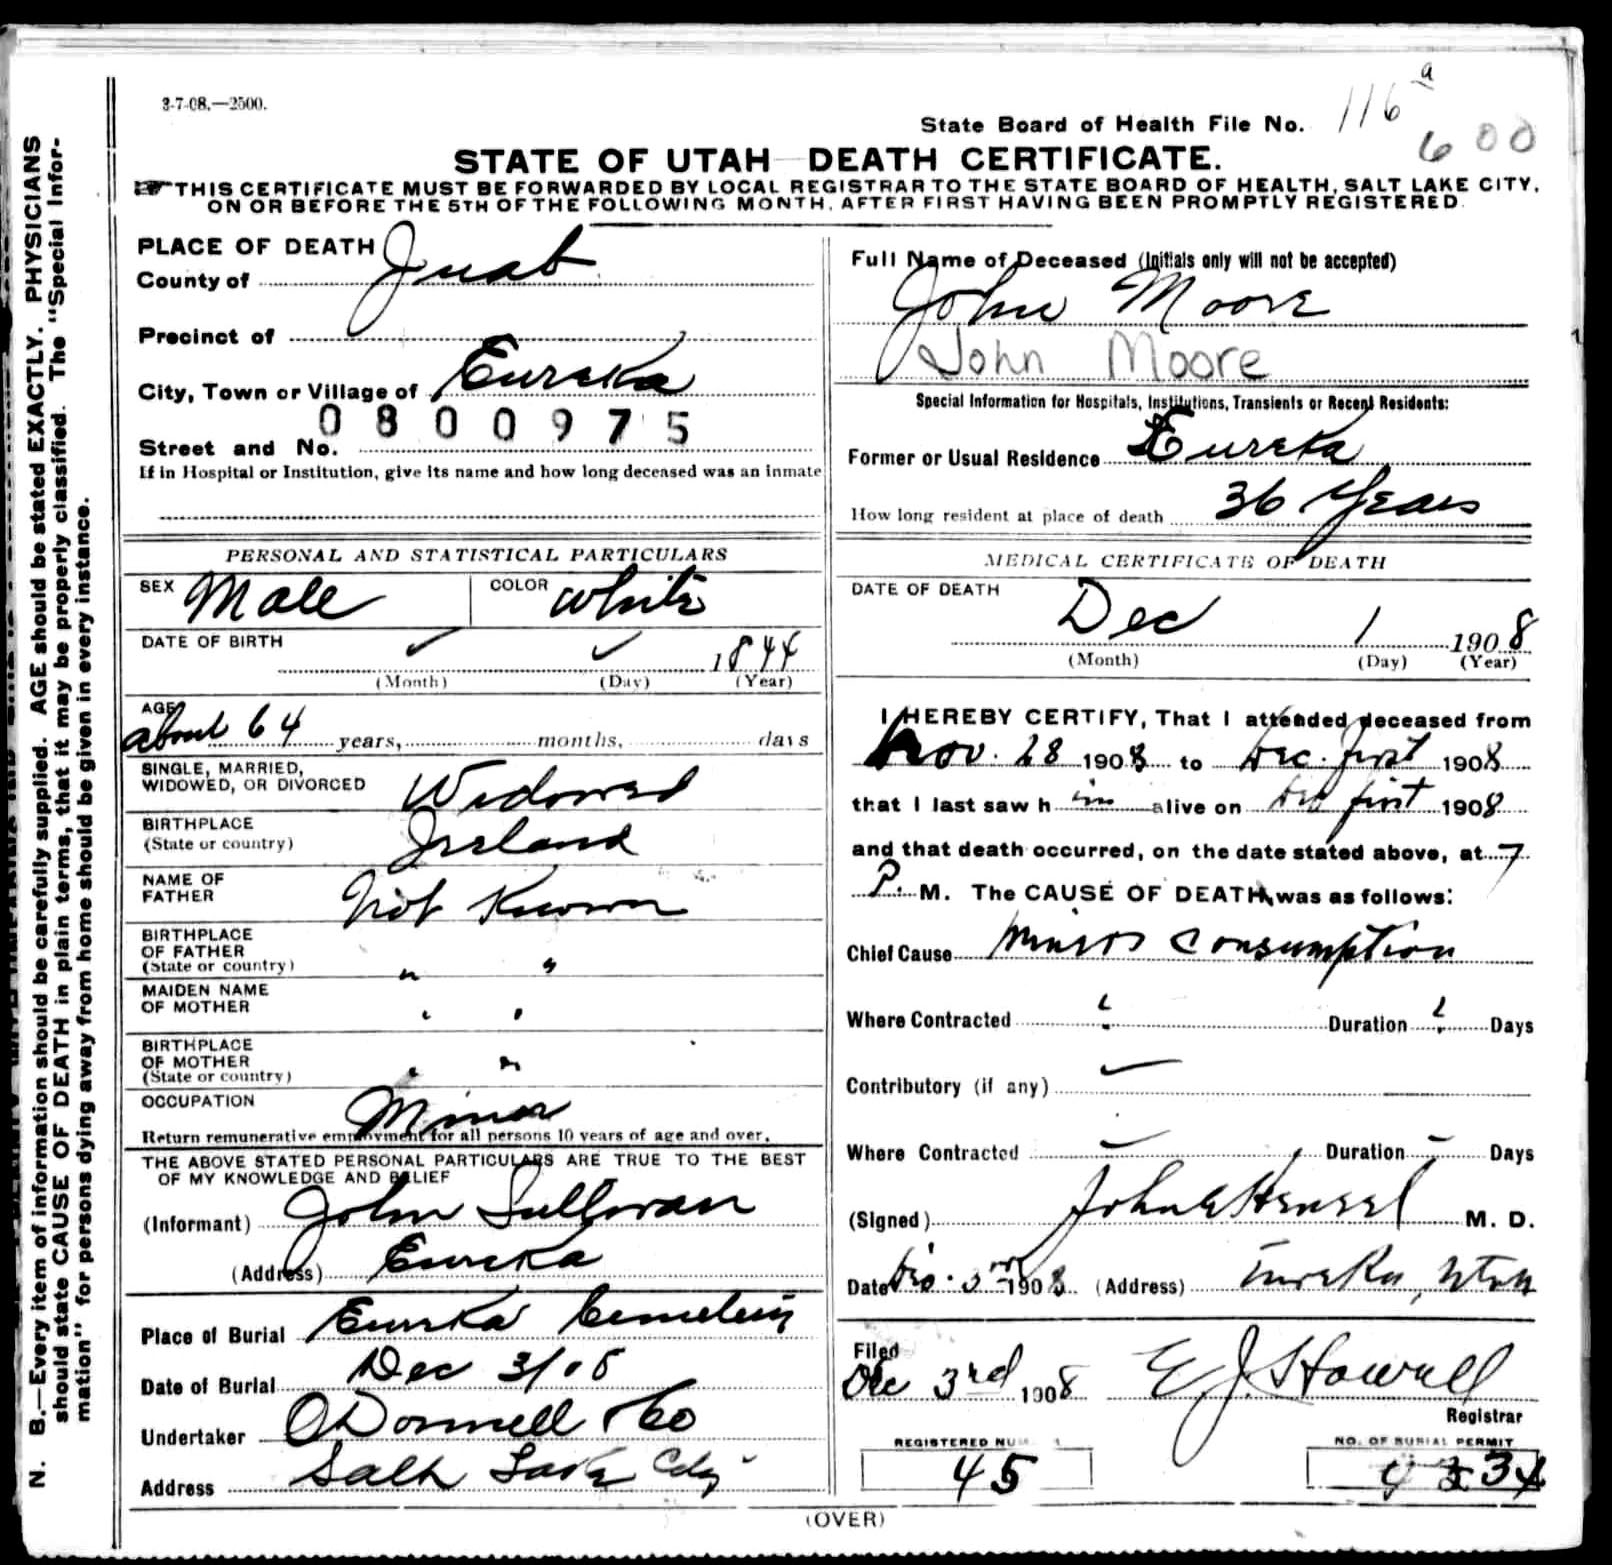 3-7-08.—2500.
State Board of Health File No. 116 a
600
STATE OF UTAH—DEATH CERTIFICATE.
THIS CERTIFICATE MUST BE FORWARDED BY LOCAL REGISTRAR TO THE STATE BOARD OF HEALTH, SALT LAKE CITY,
ON OR BEFORE THE 5TH OF THE FOLLOWING MONTH, AFTER FIRST HAVING BEEN PROMPTLY REGISTERED.
N. B.—Every item of information should be carefully supplied. AGE should be stated EXACTLY. PHYSICIANS
should state CAUSE OF DEATH in plain terms, that it may be properly classified. The "Special Infor-
mation" for persons dying away from home should be given in every instance.
PLACE OF DEATH
County of Juab
Precinct of
City, Town or Village of Eureka
0800975
Street and No.
If in Hospital or Institution, give its name and how long deceased was an inmate
PERSONAL AND STATISTICAL PARTICULARS
SEX Male COLOR White
DATE OF BIRTH 1844
(Month) (Day) (Year)
AGE
about 64 years, months, days
SINGLE, MARRIED,
WIDOWED, OR DIVORCED Widowed
BIRTHPLACE
(State or country) Ireland
NAME OF
FATHER Not Known
BIRTHPLACE
OF FATHER
(State or country) " "
MAIDEN NAME
OF MOTHER " "
BIRTHPLACE
OF MOTHER
(State or country) " "
OCCUPATION Miner
Return remunerative employment for all persons 10 years of age and over.
THE ABOVE STATED PERSONAL PARTICULARS ARE TRUE TO THE BEST
OF MY KNOWLEDGE AND BELIEF
(Informant) John Sullivan
(Address) Eureka
Place of Burial Eureka Cemetery
Date of Burial Dec 3/08
Undertaker O'Donnell & Co
Address Salt Lake City
Full Name of Deceased (Initials only will not be accepted)
John Moore
John Moore
Special Information for Hospitals, Institutions, Transients or Recent Residents:
Former or Usual Residence Eureka
How long resident at place of death 36 Years
MEDICAL CERTIFICATE OF DEATH
DATE OF DEATH
Dec 1 1908
(Month) (Day) (Year)
I HEREBY CERTIFY, That I attended deceased from
Nov. 28 1908 to Dec. first 1908
that I last saw him alive on Dec first 1908
and that death occurred, on the date stated above, at 7
P. M. The CAUSE OF DEATH was as follows:
Chief Cause Miners Consumption
Where Contracted ? Duration ? Days
Contributory (if any) —
Where Contracted — Duration — Days
(Signed) John E Hensel M. D.
Date Dec. 3rd 1908 (Address) Eureka, Utah
Filed
Dec 3rd 1908 E J Howell
Registrar
REGISTERED NUM
45
NO. OF BURIAL PERMIT
(OVER)